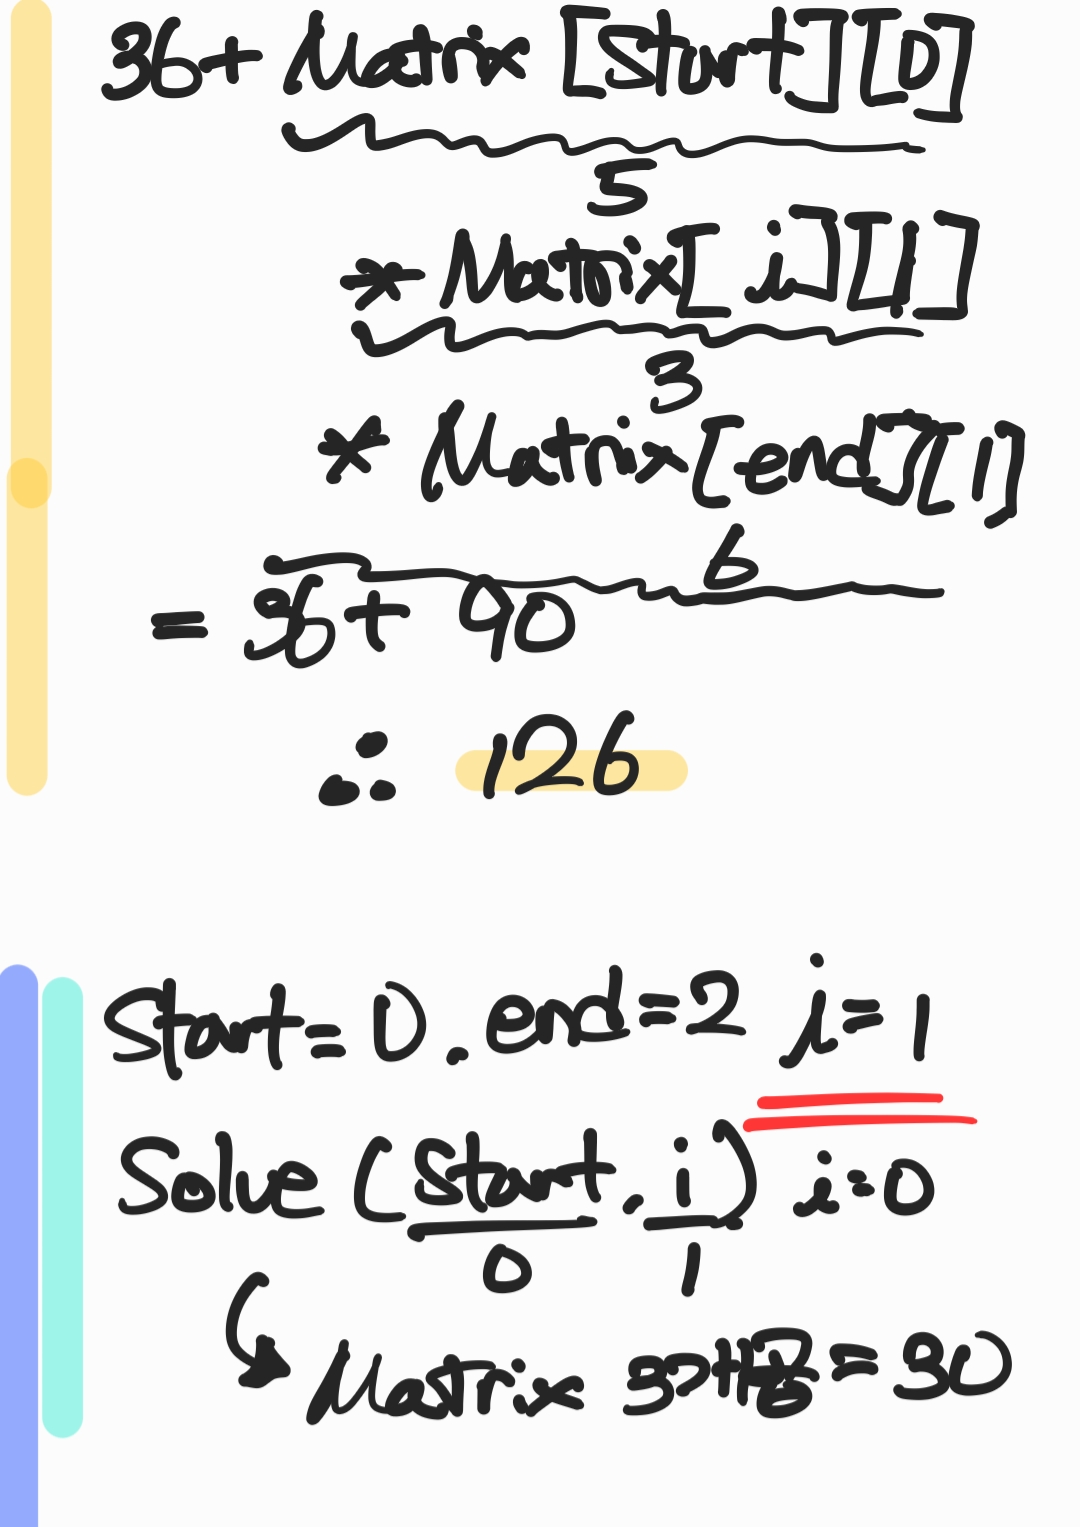 36+ Matrix [Start][0]
5
* Matrix[i][1]
3
* Matrix[end][1]
6
= 36+ 90
∴ 126
Start=0. end=2 i=1
Solve (Start, i) i=0
0 1
Matrix = 30